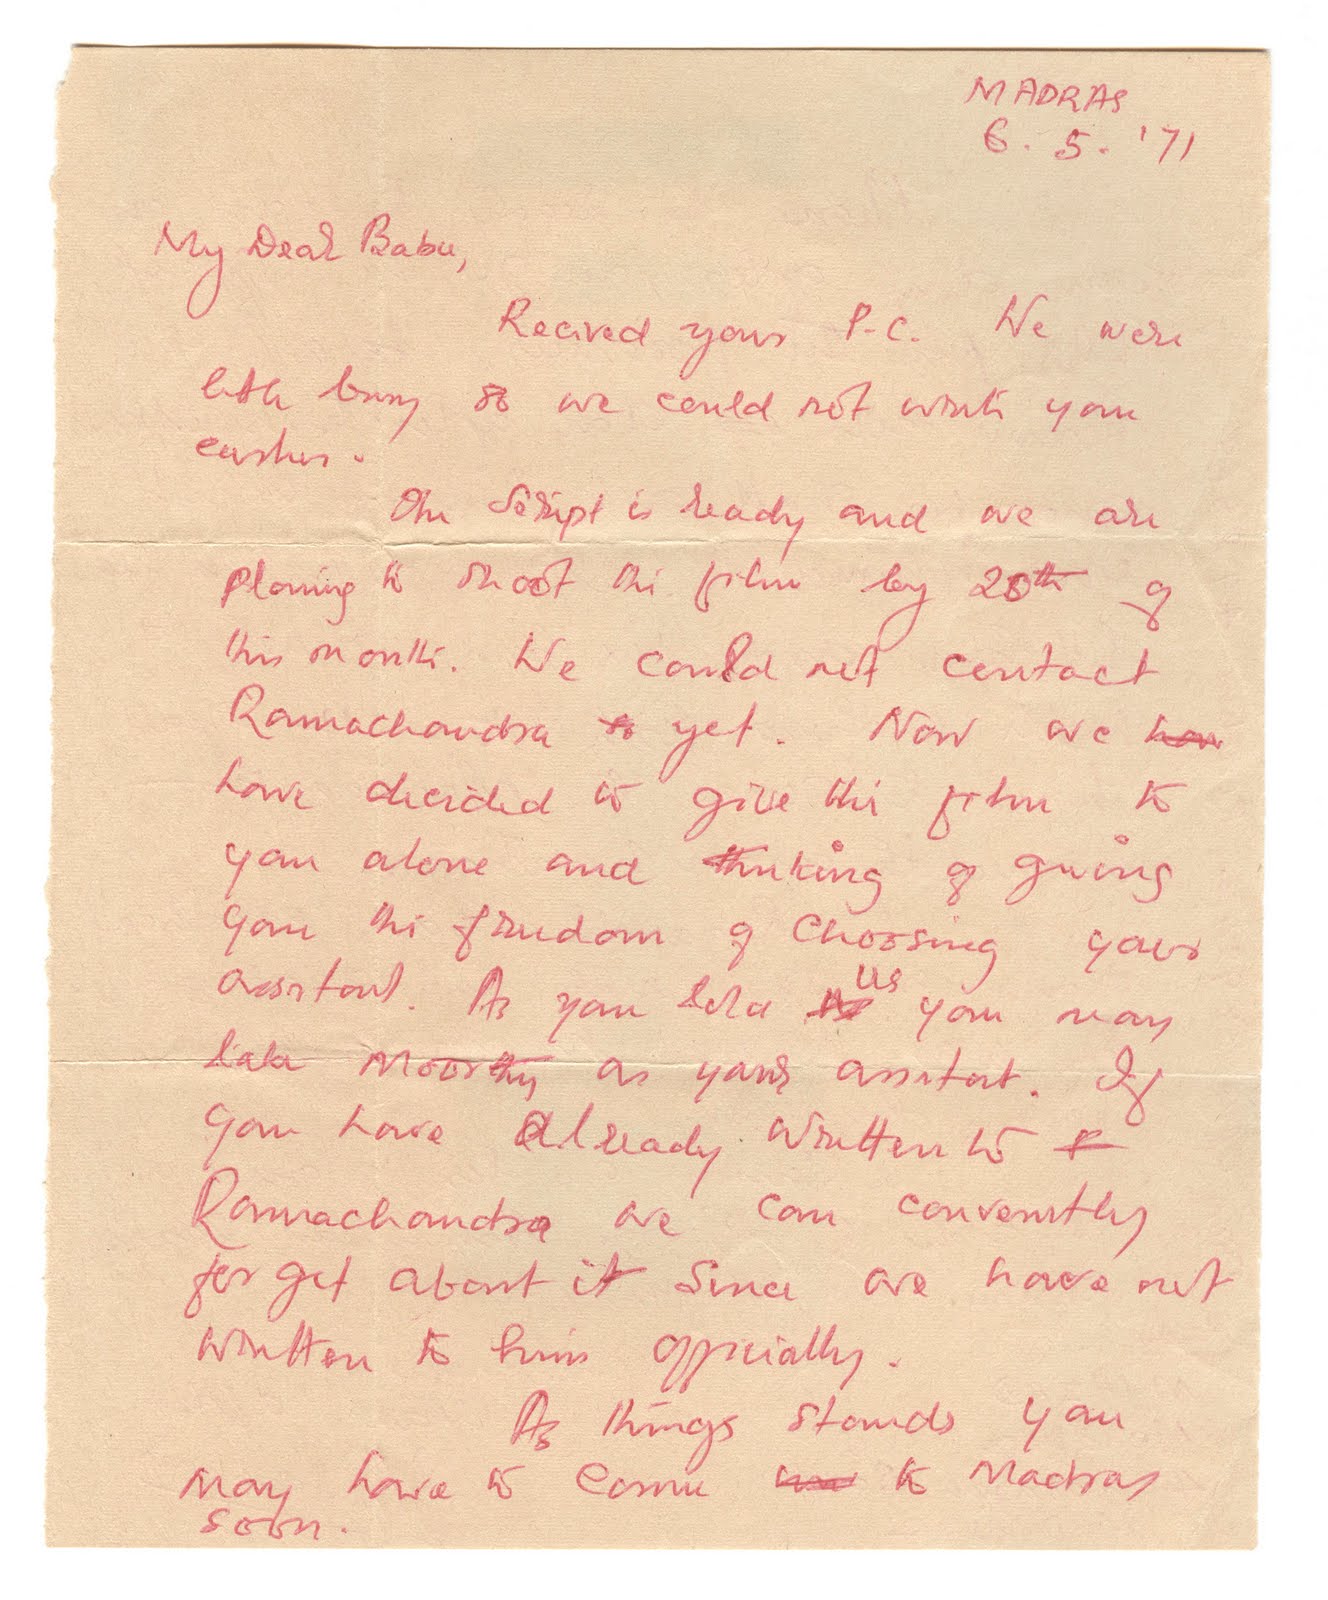 MADRAS
6. 5. '71
My Dear Babu,
Recived your P.C. We were
little busy so we could not write you
earlier.
The Script is ready and we are
planing to shoot the film by 20th of
this month. We could not contact
Ramachandra yet. Now we
have decided to give the film to
you alone and thinking of giving
you the freedom of choosing your
assistant. As you told us you may
take Moorthy as your assistant. If
you have already written to
Ramachandra we can convenitly
forget about it since we have not
written to him officially.
As things stands you
may have to come to Madras
soon.